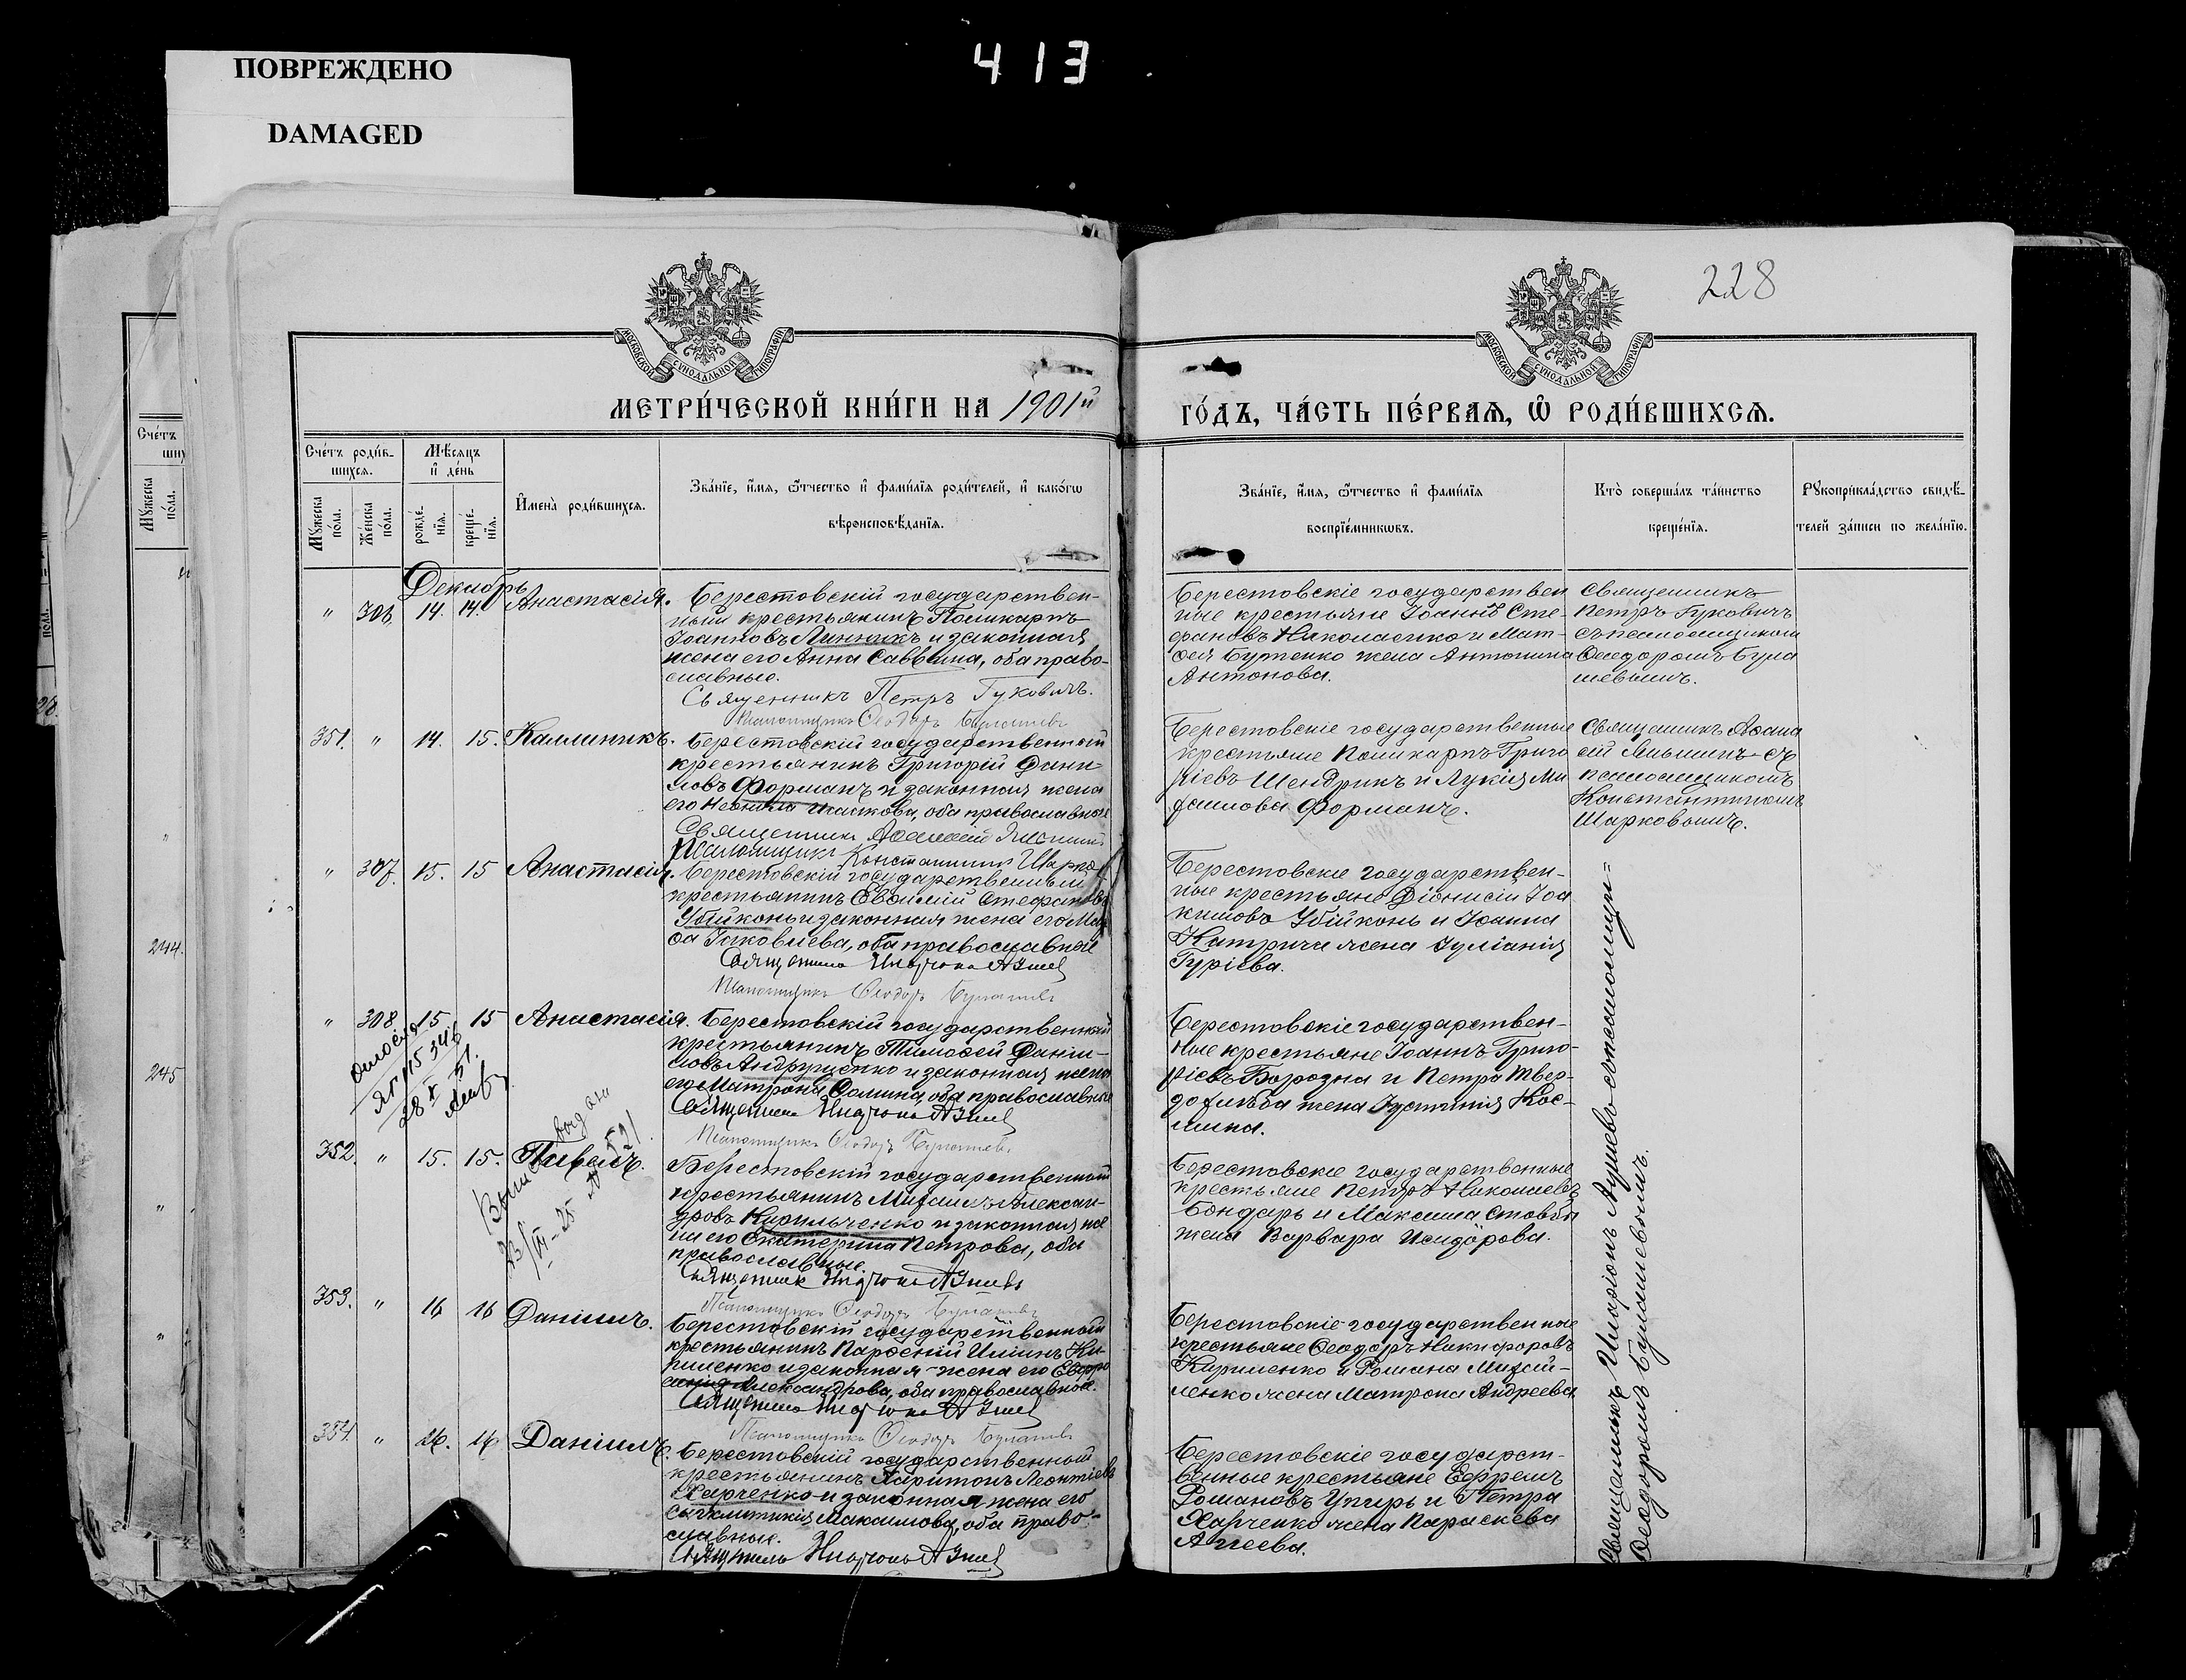 413
ПОВРЕЖДЕНО
DAMAGED
228
МОСКОВСКОЙ СУНОДАЛЬНОЙ ТИПОГРАФІИ
МОСКОВСКОЙ СУНОДАЛЬНОЙ ТИПОГРАФІИ
МЕТРИ́ЧЕСКОЙ КНИ́ГИ НА 1901й
ГО́ДЪ, ЧА́СТЬ ПЕ́РВАѦ, Ѡ РОДИ́ВШИХСѦ.
Сче́тъ роди́в-
шихсѧ.
Мѣ́сѧцъ
и́ де́нь
Мꙋ́жеска по́ла.
Же́нска по́ла.
рожде́-
нїѧ.
креще́-
нїѧ.
И҆мена̀ роди́вшихсѧ.
Зва́нїе, и҆́мѧ, ѻ҆́тчество и҆ фами́лїѧ роди́телей, и҆ како́гѡ
вѣроисповѣ́данїѧ.
Зва́нїе, и҆́мѧ, ѻ҆́тчество и҆ фами́лїѧ
воспрїе́мникѡвъ.
Кто̀ соверша́лъ та́инство
креще́нїѧ.
Рꙋкоприкла́дство свидѣ́-
телей за́писи по жела́нїю.
Декабрь
" 306. 14. 14. Анастасія.
Берестовскій государствен-
ный крестьянинъ Поликарпъ
Іоанновъ и законная
жена его Анна Саввина, оба право-
славные.
Священникъ Петръ Гуковичъ.
Псаломщикъ Ѳеодоръ Булашевъ
Берестовскіе государствен
ные крестьяне Іоаннъ Сте-
фановъ Николаенко и Мат-
ѳея Бутенко жена Антонина
Антонова.
Священникъ
Петръ Гуковичъ
съ псаломщикомъ
Ѳеодоромъ Була
шевымъ.
351. " 14. 15. Каллиникъ.
Берестовскій государственный
крестьянинъ Григорій Дани-
ловъ Форманъ и законная жена
его оба православные
Священникъ
Псаломщикъ Константинъ
Берестовскіе государственные
крестьяне Поликарпъ Григо
ріевъ Шендрикъ и Лукія Ми
хаилова Форманъ.
Священникъ Аѳана
сій съ
псаломщикомъ
Константиномъ
Шарковымъ.
" 307. 15. 15 Анастасія.
Берестовскій государственный
крестьянинъ Евѳимій Стефановъ
Убійконь и законная жена его Мар
ѳа Іаковлева, оба православные
Священникъ
Псаломщикъ Ѳеодоръ Булашевъ
Берестовскіе государствен-
ные крестьяне Діонисій Іоа
кимовъ Убійконь и Іоанна
жена Іуліанія
Гуріева.
" 308 15 15 Анастасія.
Берестовскій государственный
крестьянинъ Тимоѳей Даніи-
ловъ Андрущенко и законная жена
его Матрона Ѳомина, оба православные
Священникъ
Псаломщикъ Ѳеодоръ Булашевъ
Берестовскіе государствен-
ные крестьяне Іоаннъ Григо-
ріевъ Бородна и Петра Твер-
дохлѣба жена Іустинія Кос-
мина.
352. " 15. 15. Павелъ.
Берестовскій государственный
крестьянинъ Михаилъ Алексан-
дровъ Кирильченко и законная же
на его Екатерина Петрова, оба
православные.
Священникъ
Псаломщикъ Ѳеодоръ Булашевъ
Берестовскіе государственные
крестьяне Петръ Николаевъ
Бондарь и Максима Стовбы
жена Варвара Исидорова.
353. " 16 16 Даніилъ.
Берестовскій государственный
крестьянинъ Парѳеній Иліинъ Ки-
риленко и законная жена его Евфро
синія Александрова, оба православные.
Священникъ
Псаломщикъ Ѳеодоръ Булашевъ
Берестовскіе государственные
крестьяне Ѳеодоръ Никифоровъ
Кириленко и Романа Михай-
ленко жена Матрона Андреева
354. " 16. 16 Даніилъ.
Берестовскій государственный
крестьянинъ Харитонъ Леонтіевъ
Харченко и законная жена его
Максимова, оба право-
славные.
Священникъ
Берестовскіе государст-
венные крестьяне Ефремъ
Романовъ Упирь и Петра
Харченко жена Параскева
Аггеева.
Священникъ Иларіонъ съ псаломщи=
Ѳеодоромъ Булашевымъ.
244.
245